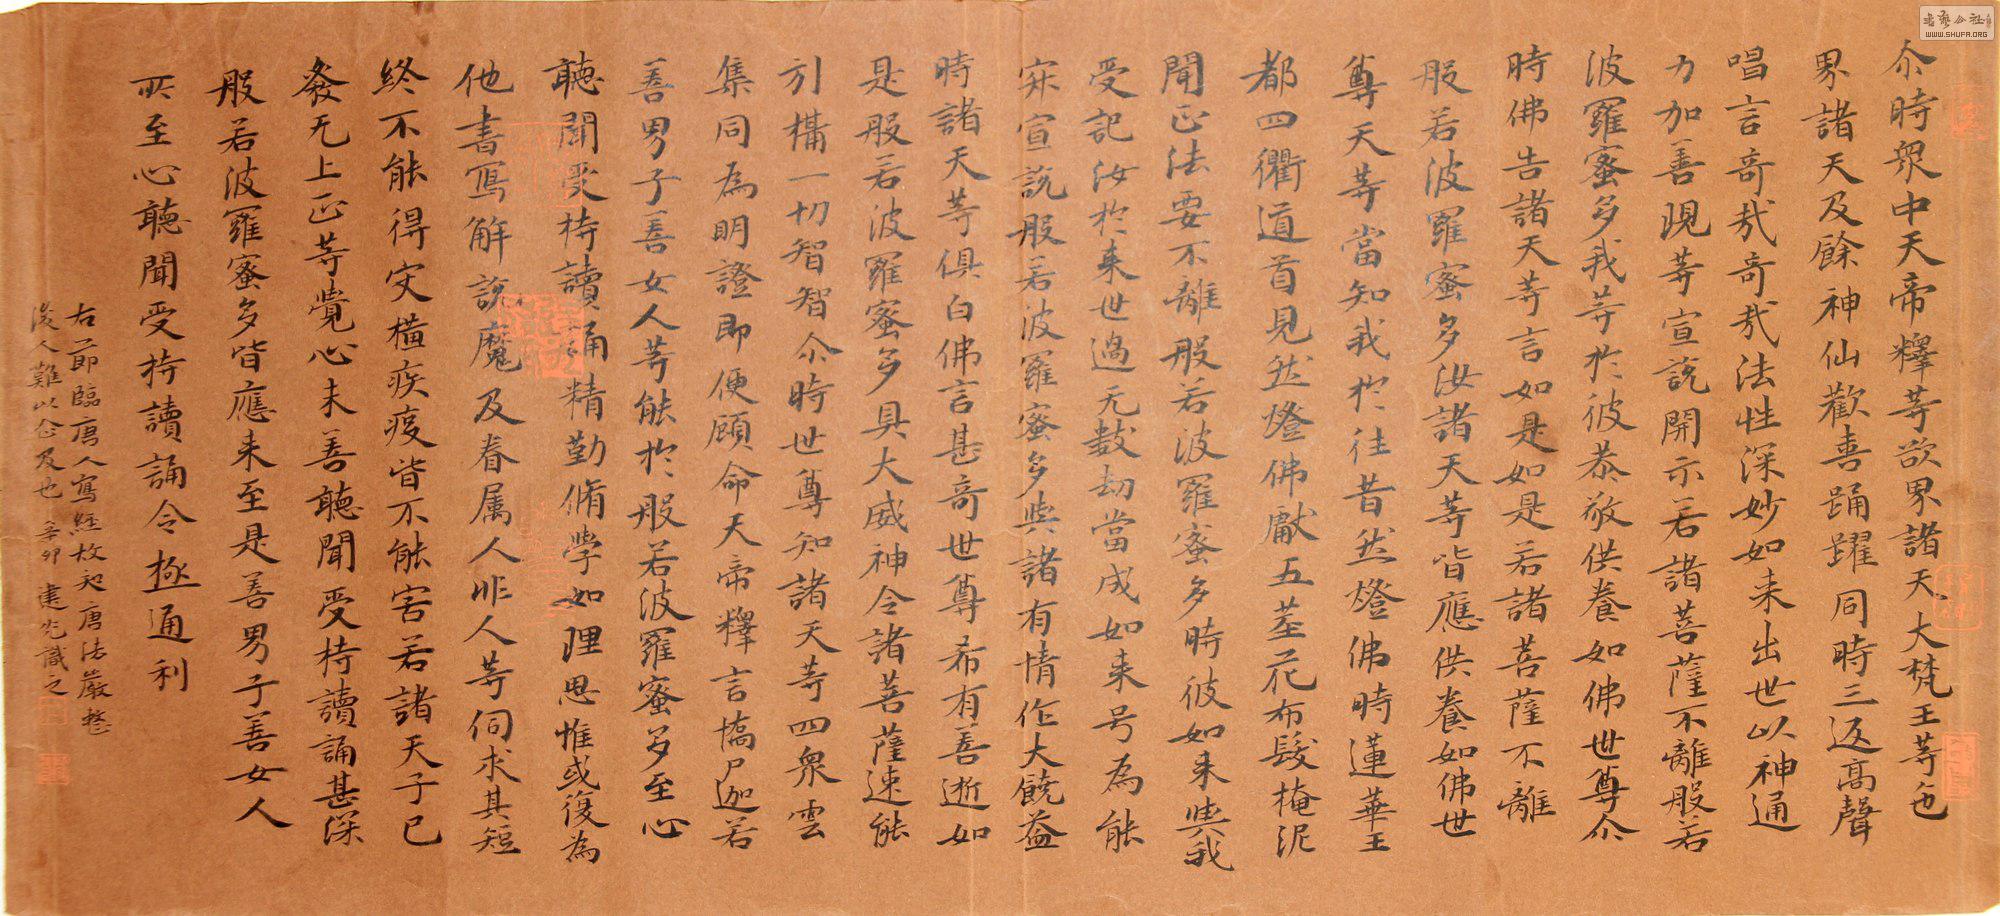 尒時衆中天帝釋等欲界諸天大梵王等色
界諸天及餘神仙歡喜踊躍同時三返高聲
唱言奇㢤奇㢤法性深妙如来出世以神通
力加善現等宣說開示若諸菩薩不離般若
波羅蜜多我等於彼恭敬供養如佛世尊尒
時佛告諸天等言如是如是若諸菩薩不離
般若波羅蜜多汝諸天等皆應供養如佛世
尊天等當知我於往昔然燈佛時蓮華王
都四衢道首見然燈佛獻五莖花布髮掩泥
聞正法要不離般若波羅蜜多時彼如来與我
受記汝於来世過无數劫當成如来号為能
寂宣說般若波羅蜜多與諸有情作大饒益
時諸天等俱白佛言甚奇世尊希有善逝如
是般若波羅蜜多具大威神令諸菩薩速能
引攝一切智智尒時世尊知諸天等四衆雲
集同為明證即便顧命天帝釋言憍尸迦若
善男子善女人等能於般若波羅蜜多至心
聽聞受持讀誦精勤脩學如理思惟或復為
他書寫解說魔及眷属人非人等伺求其短
終不能得灾橫疾疫皆不能害若諸天子已
發无上正等覺心未善聽聞受持讀誦甚深
般若波羅蜜多皆應来至是善男子善女人
所至心聽聞受持讀誦令極通利
右節臨唐人寫經故知唐法嚴整
後人難以企及也 辛卯 建光識之
書藝公社
WWW.SHUFA.ORG